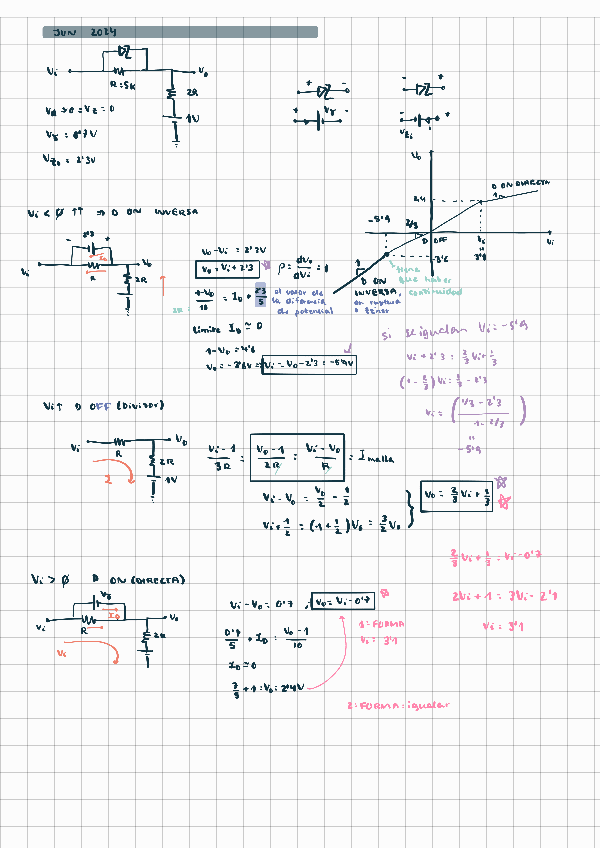 JUN 2024
Vi
Vo
R=5K
2R
1V
Vγ = 0'7V
Vz₀ = 2'3V
+ -
- +
+ Vγ -
Vzi
Vo
2,4
D ON DIRECTA
-5'9
2/3
D OFF
Vi
3'1
-3'6
1
D ON INVERSA,
en ruptura
o zener
tiene que haber continuidad
Vi < 0 ↑↑ ⇒ D ON INVERSA
- 2'3 +
Vi
R
Vo
2R
Vo - Vi = 2'3V
Vo = Vi + 2'3
ρ = dVo/dVi = 1
2R:
(1-Vo)/10 = I_D + 2'3/5
el valor de la diferencia de potencial
limite I_D ≈ 0
1-Vo = 4'6
Vo = -3'6V ⇒ Vi = Vo - 2'3 = -5'9V
si se igualan Vi = -5'9
Vi + 2'3 = 2/3 Vi + 1/3
(1 - 2/3) Vi = 1/3 - 2'3
Vi = ((1/3 - 2'3)/(1 - 2/3))
"
-5'9
Vi ↑ D OFF (Divisor)
Vi
R
Vo
2R
1V
I
(Vi-1)/3R = (Vo-1)/2R = (Vi-Vo)/R = I malla
Vi - Vo = Vo/2 - 1/2
Vi + 1/2 = (1 + 1/2) Vo = 3/2 Vo
Vo = 2/3 Vi + 1/3
2/3 Vi + 1/3 = Vi - 0'7
2Vi + 1 = 3Vi - 2'1
Vi = 3'1
Vi > 0 D ON (DIRECTA)
+ Vγ -
I_D
Vi
R
Vo
2R
Vi
Vi - Vo = 0'7, Vo = Vi - 0'7
0'7/5 + I_D = (Vo-1)/10
I_D ≈ 0
7/5 + 1 = Vo = 2'4V
1ª FORMA
Vi = 3'1
2ª FORMA: igualar